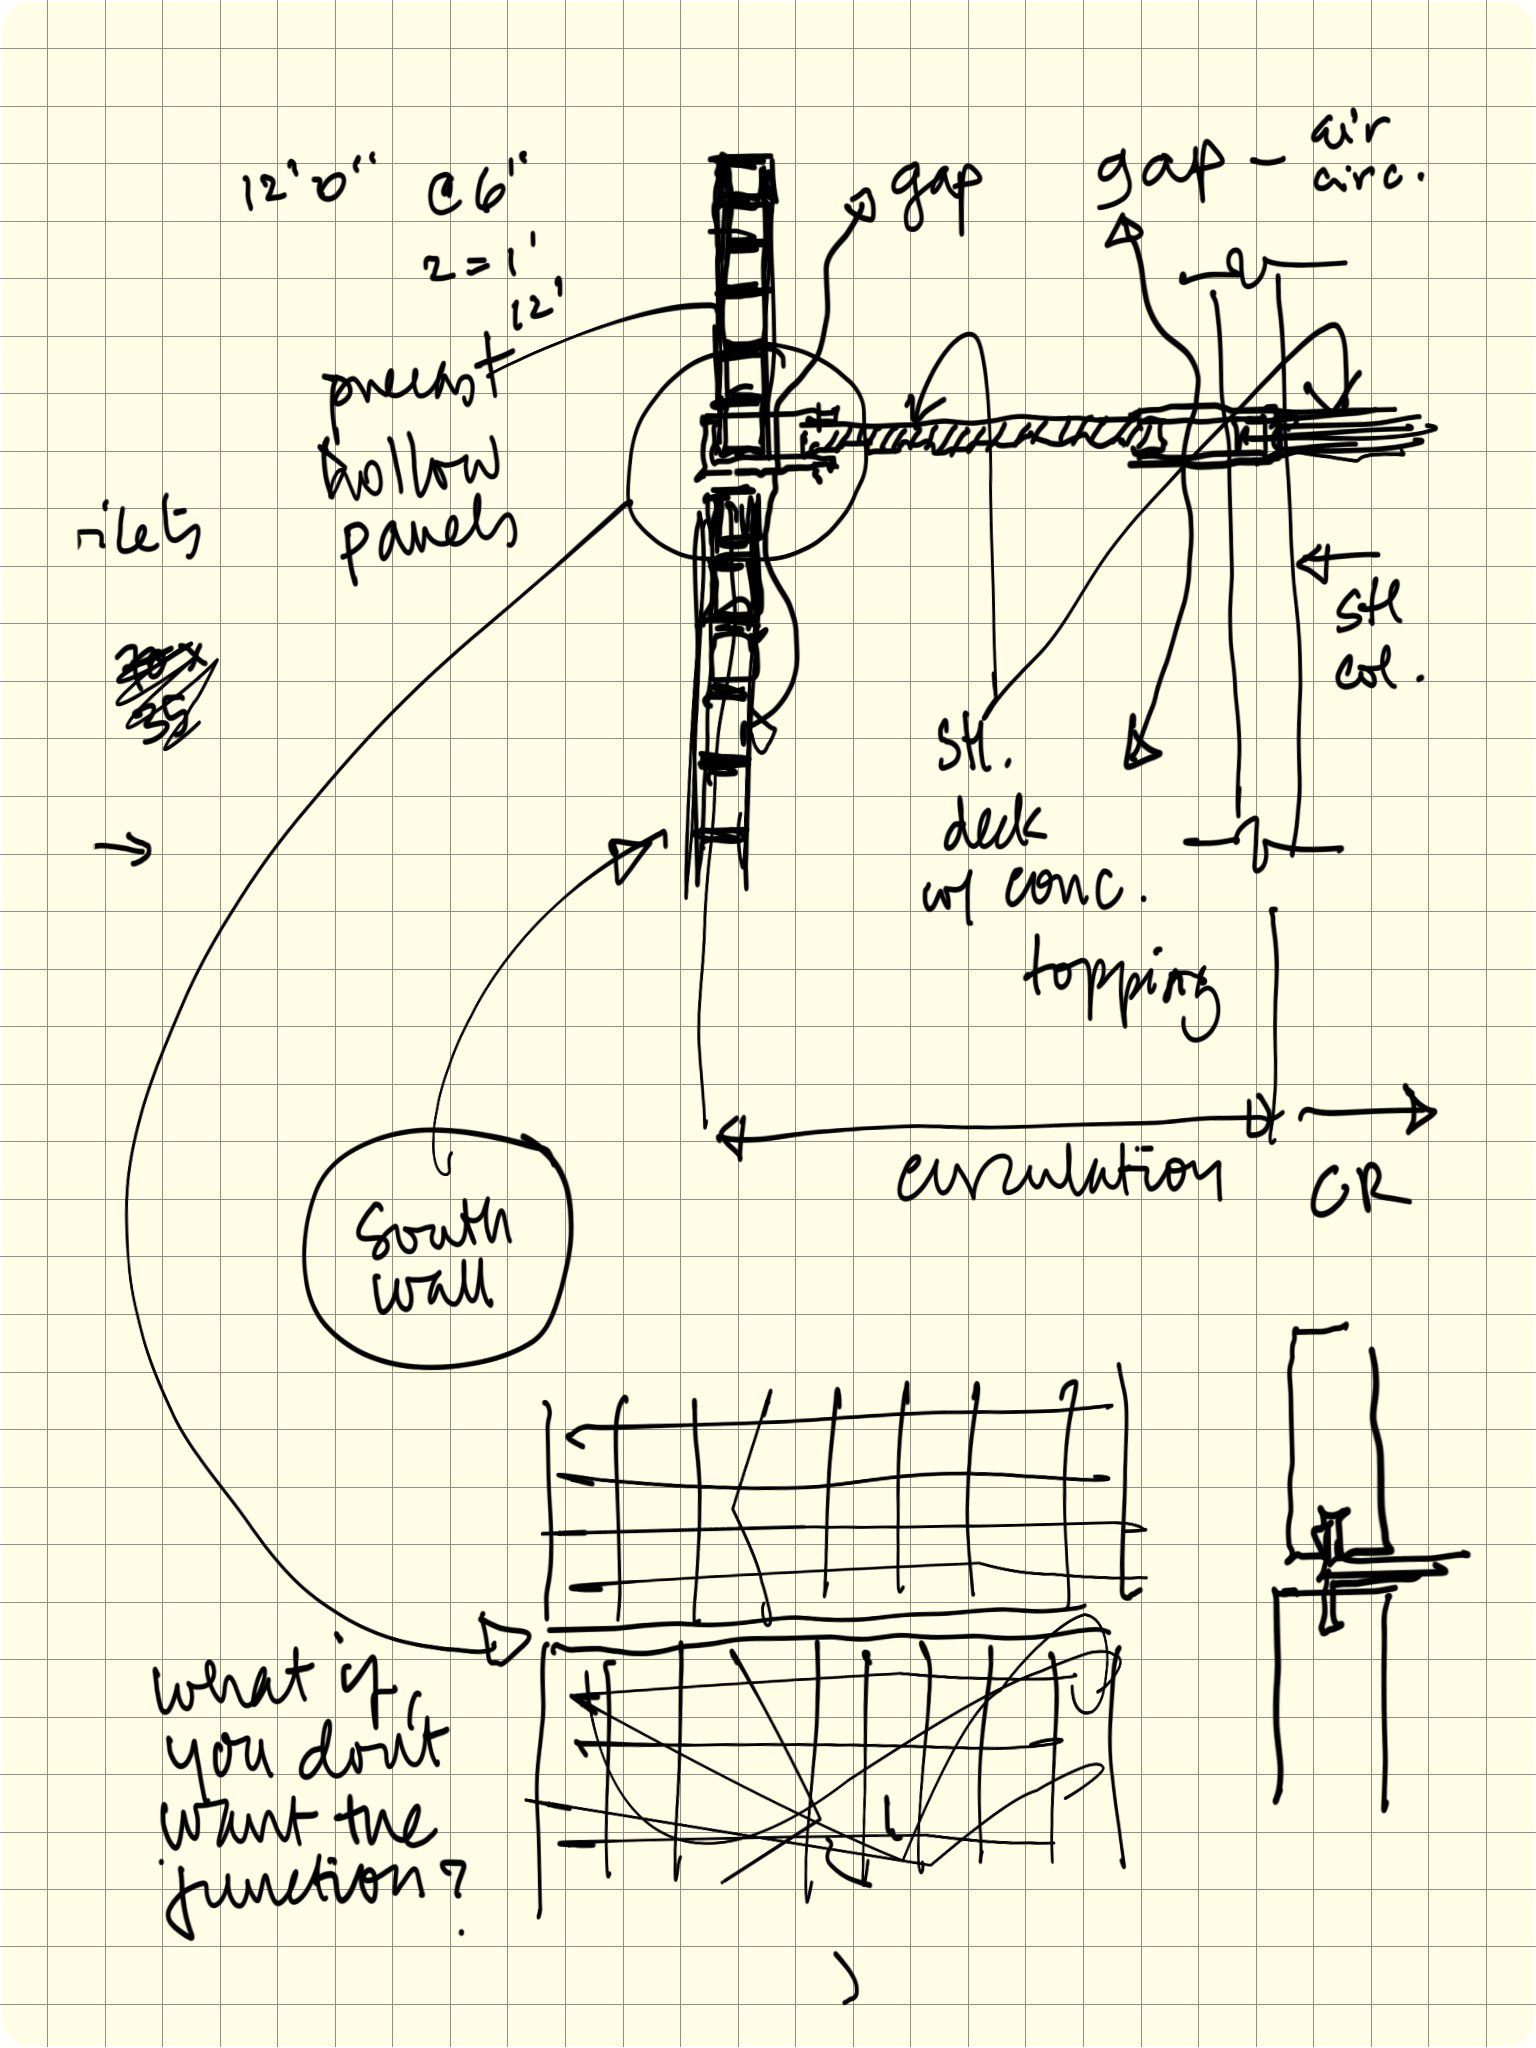 12'0" @ 6"
2 = 1'
12'
precast
hollow
panels
gap
gap - air
circ.
stl
col.
stl.
deck
w/ conc.
topping
circulation
CR
south
wall
what if
you don't
want the
junction?